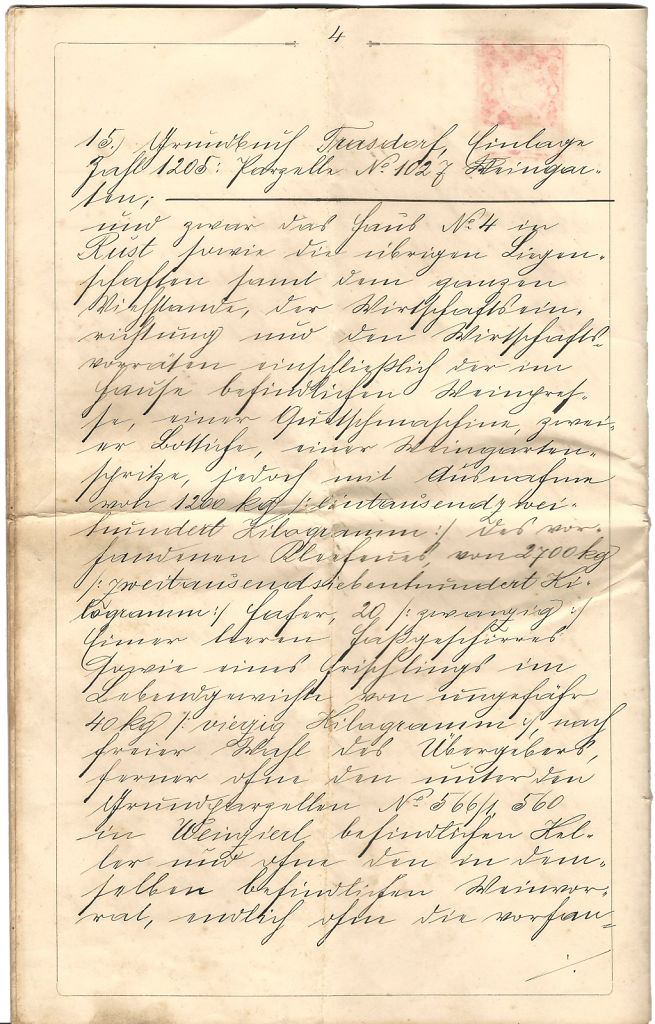 4
15.) Grundbuch Trasdorf, Einlage
Zahl 1205: Parzelle No 1027 Weingar-
ten;
und zwar das Haus No 4 in
Rust sowie die übrigen Liegen-
schaften samt dem ganzen
Viehstande, der Wirtschaftsein-
richtung und den Wirtschafts-
vorräten einschließlich der im
Hause befindlichen Weinpres-
se, einer Quetschmaschine, zwei-
er Bottiche, einer Weingarten-
spritze, jedoch mit Ausnahme
von 1200 kg /: eintausendzwei-
hundert Kilogramm :/ des vor-
handenen Kleeheues, von 2700 kg
/: zweitausendsiebenhundert Ki-
logramm :/ Hafer, 20 /: zwanzig :/
Eimer leeren Faßgeschirres
sowie eines Frischlings im
Lebendgewichte von ungefähr
40 kg /: vierzig Kilogramm :/, nach
freier Wahl des Übergebers,
ferner ohne den unter den
Grundparzellen No 566/1, 560
in Weingierl befindlichen Kel-
ler und ohne den in dem-
selben befindlichen Weinvor-
rat, endlich ohne die vorhan-
./.